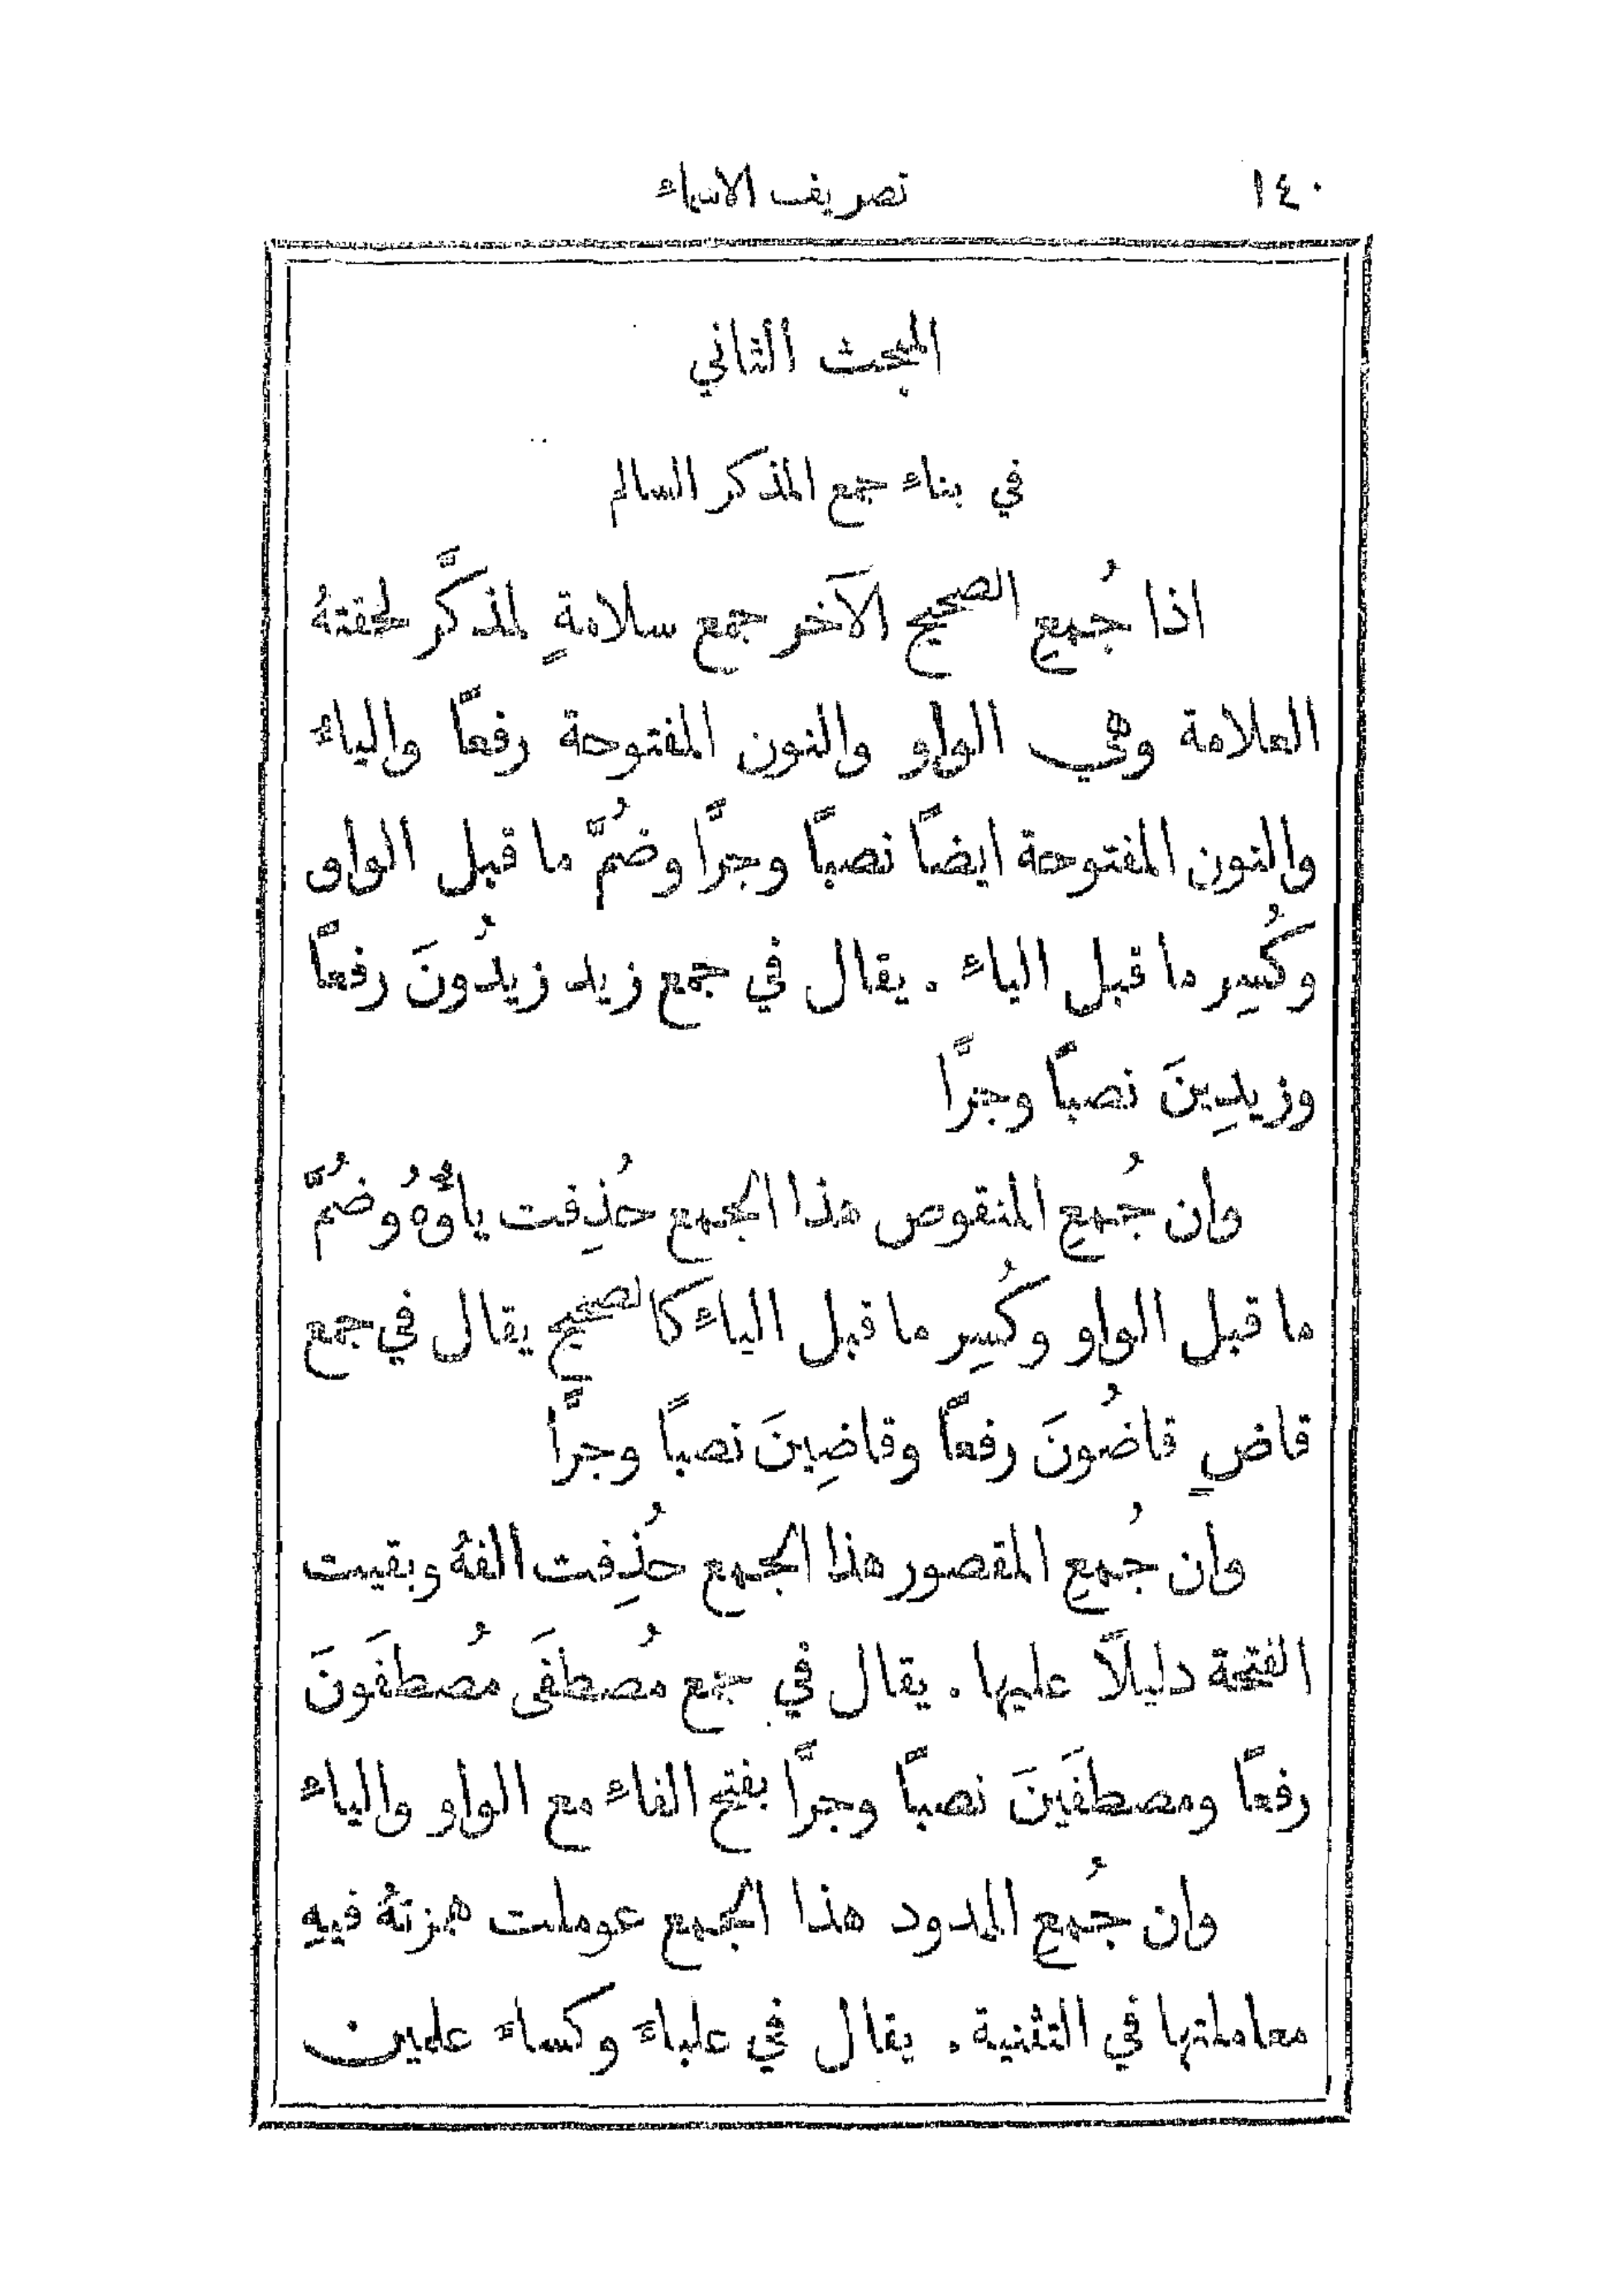 ١٤٠ تصريف الاسماء
المبحث الثاني
في بناء جمع المذكر السالم
اذا جُمِع الصحيح الآخر جمع سلامةٍ لمذكَّر لحقتهُ
العلامة وهي الواو والنون المفتوحة رفعًا والياء
والنون المفتوحة ايضًا نصبًا وجرًّا وضُمَّ ما قبل الواو
وكُسِر ما قبل الياء . يقال في جمع زيد زيدُونَ رفعًا
وزيدِينَ نصبًا وجرًّا
وان جُمِع المنقوص هذا الجمع حُذِفت ياؤُهُ وضُمَّ
ما قبل الواو وكُسِر ما قبل الياء كالصحيح يقال في جمع
قاضٍ قاضُونَ رفعًا وقاضِينَ نصبًا وجرًّا
وان جُمِع المقصور هذا الجمع حُذِفت الفهُ وبقيت
الفتحة دليلًا عليها . يقال في جمع مُصطفَى مُصطفَونَ
رفعًا ومصطفَينَ نصبًا وجرًّا بفتح الفاء مع الواو والياء
وان جُمِع الممدود هذا الجمع عوملت همزتهُ فيهِ
معاملتها في التثنية . يقال في علباء وكساء علمين